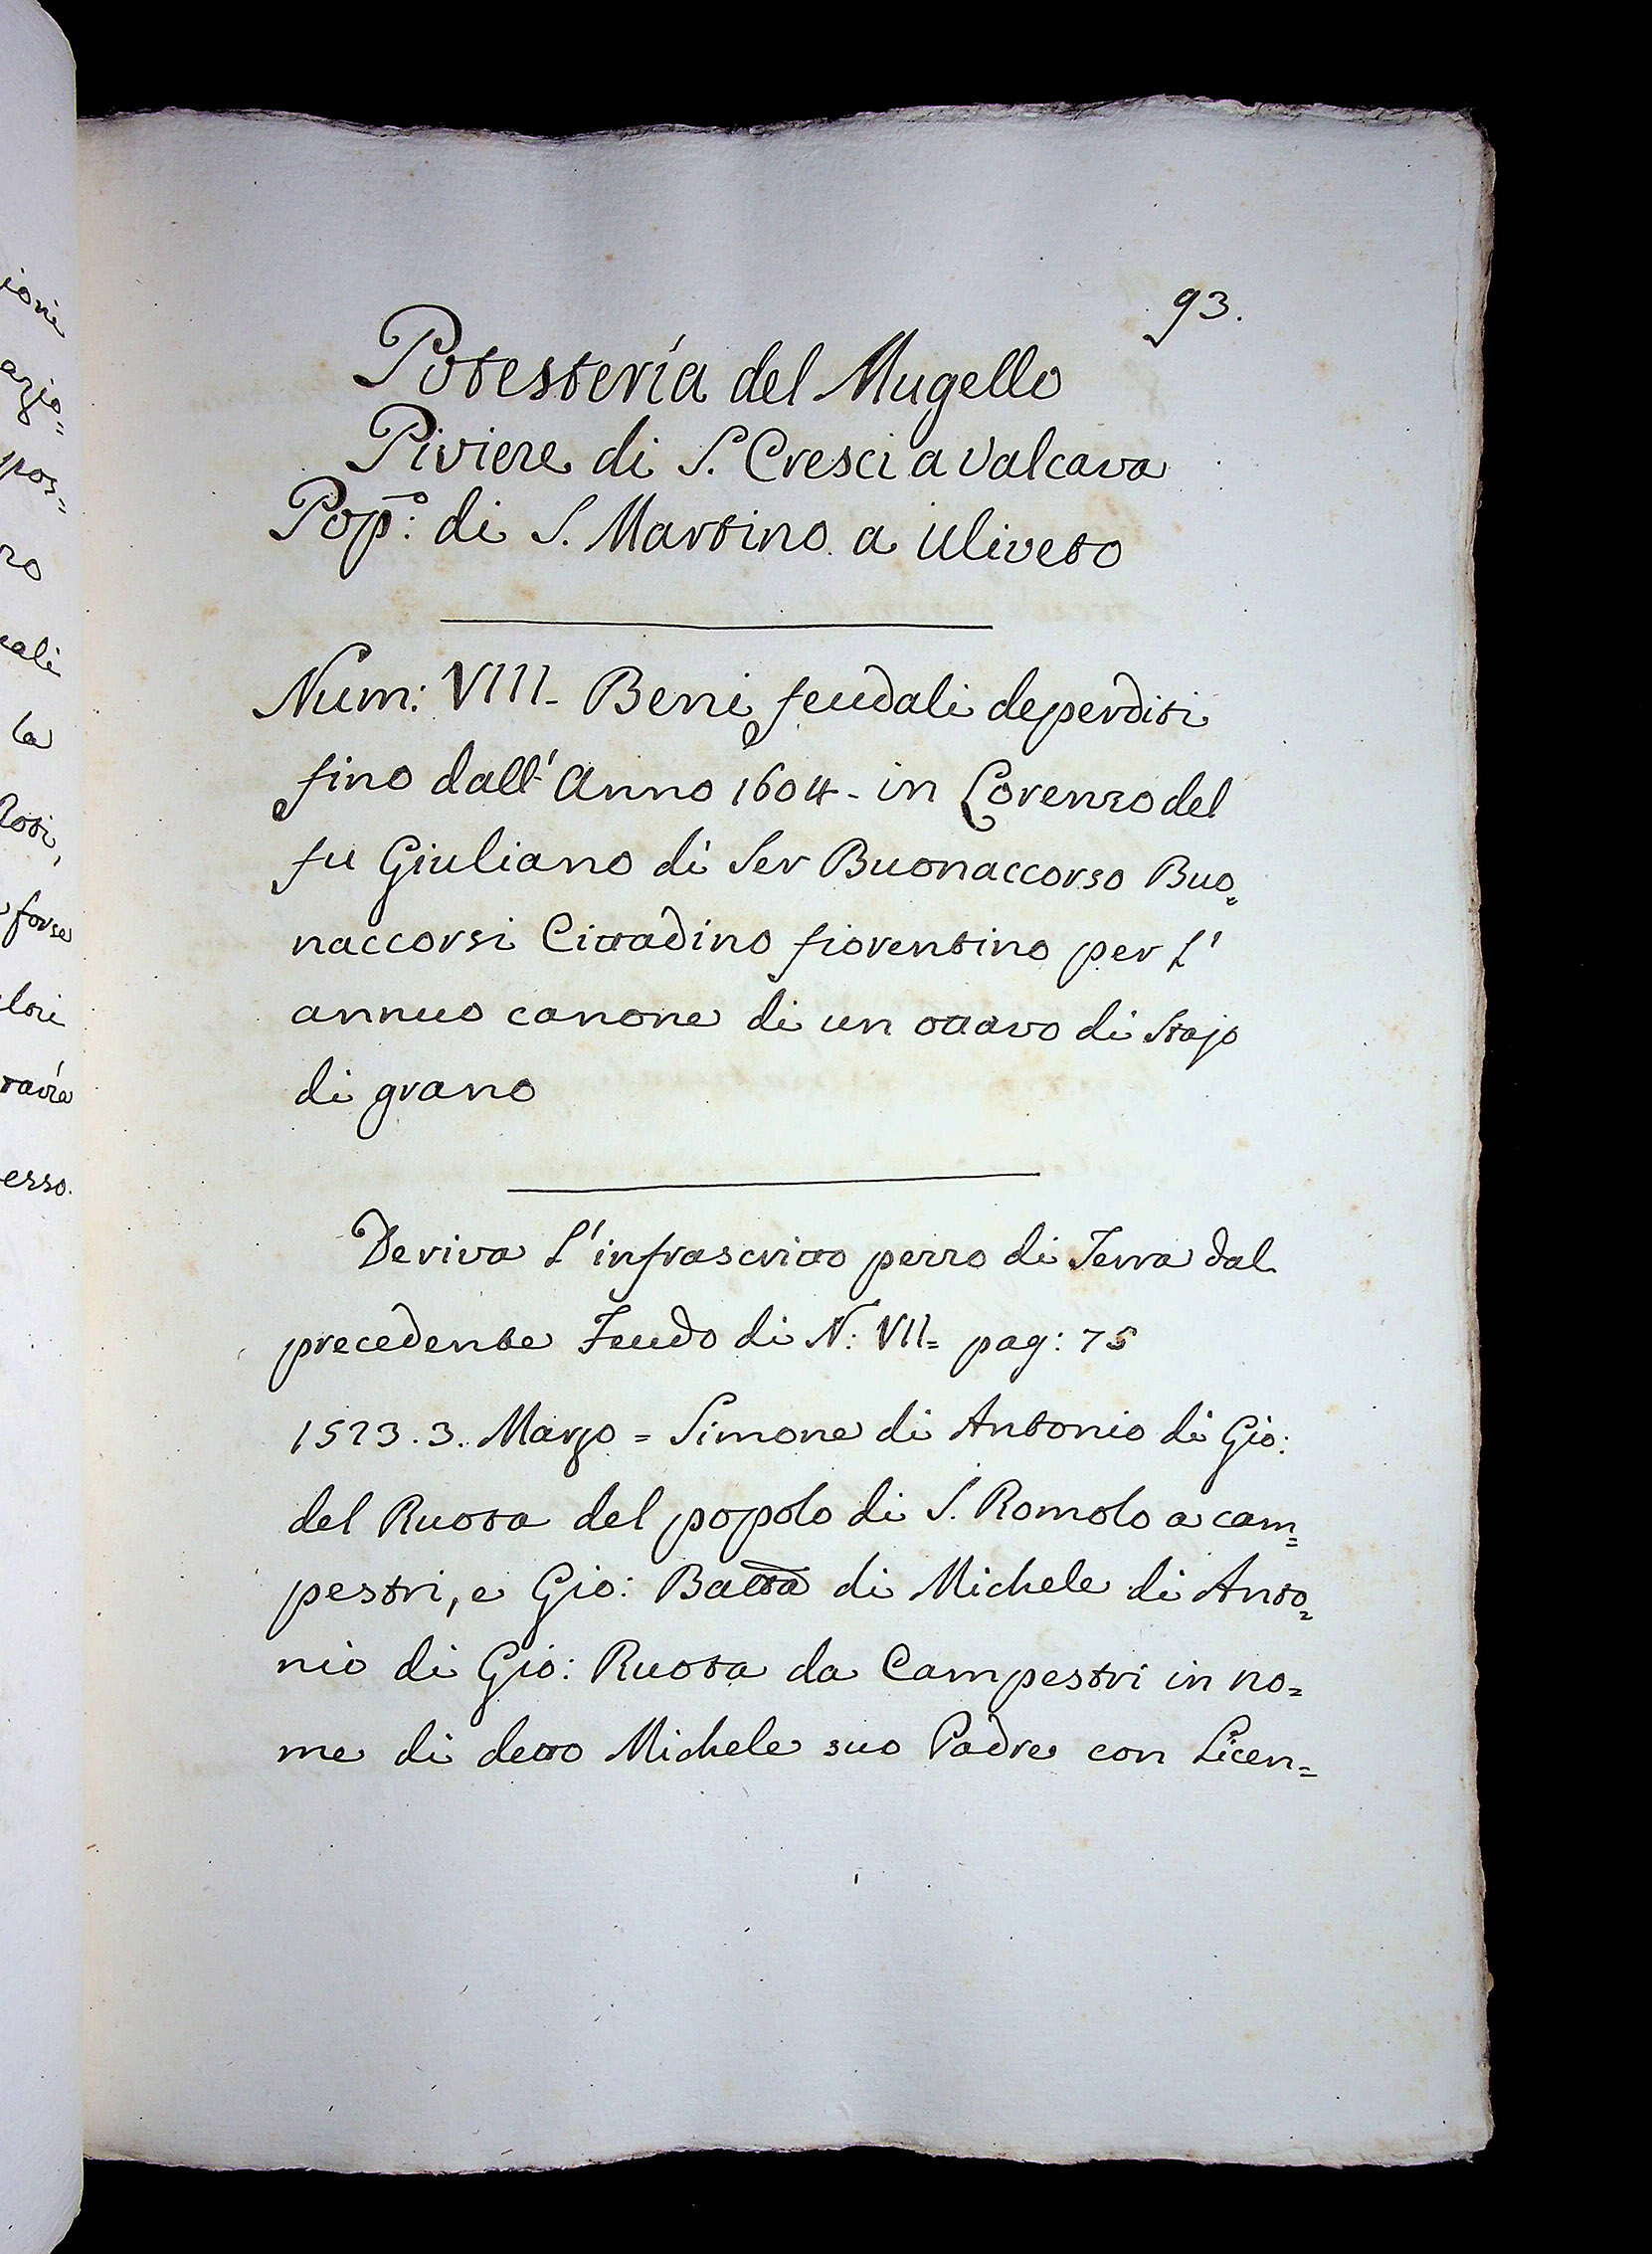 93.
Potestería del Mugello
Piviere di S. Cresci a Valcava
Pop.º di S. Martino a Uliveto
Num: VIII- Beni feudali deperditi
fino dall'Anno 1604- in Lorenzo del
fu Giuliano di Ser Buonaccorso Buo=
naccorsi Cittadino fiorentino per L'
annuo canone di un ottavo di Stajo
di grano
Deriva L'infrascritto pezzo di Terra dal
precedente Feudo di N: VII= pag: 75
1523. 3. Marzo = Simone di Antonio di Gio:
del Ruota del popolo di S. Romolo a cam=
pestri, e Gio: Batta di Michele di Anto=
nio di Gio: Ruota da Campestri in no=
me di detto Michele suo Padre con Licen=